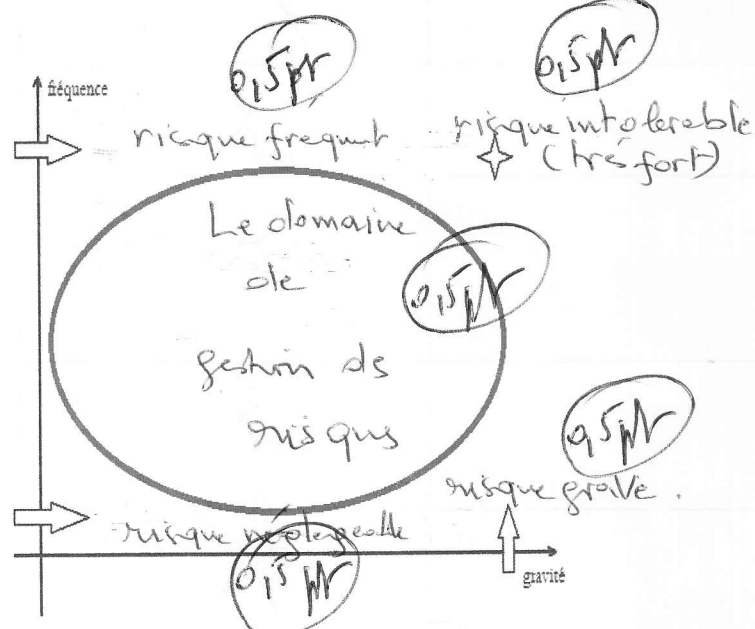 0,5pt
0,5pt
fréquence
risque fréquent
risque intolerable
(très fort)
Le domaine
de
0,5pt
gestion des
risques
0,5pt
risque grave.
risque négligeable
0,5pt
gravité